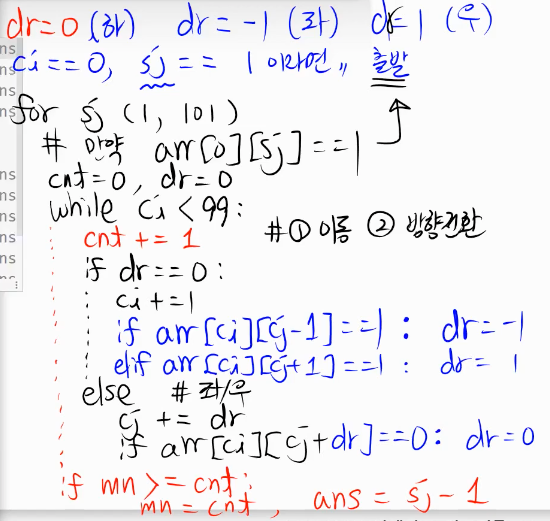 dr=0 (하) dr=-1 (좌) dr=1 (우)
ci==0, sj == 1 이라면,, 출발
for sj (1, 101)
# 만약 arr[0][sj]==1
cnt=0, dr=0
while ci<99: #① 이동 ② 방향전환
cnt += 1
if dr==0:
ci+=1
if arr[ci][cj-1]==1: dr=-1
elif arr[ci][cj+1]==1: dr= 1
else # 좌/우
cj += dr
if arr[ci][cj+dr]==0: dr=0
if mn >= cnt:
mn = cnt, ans = sj-1